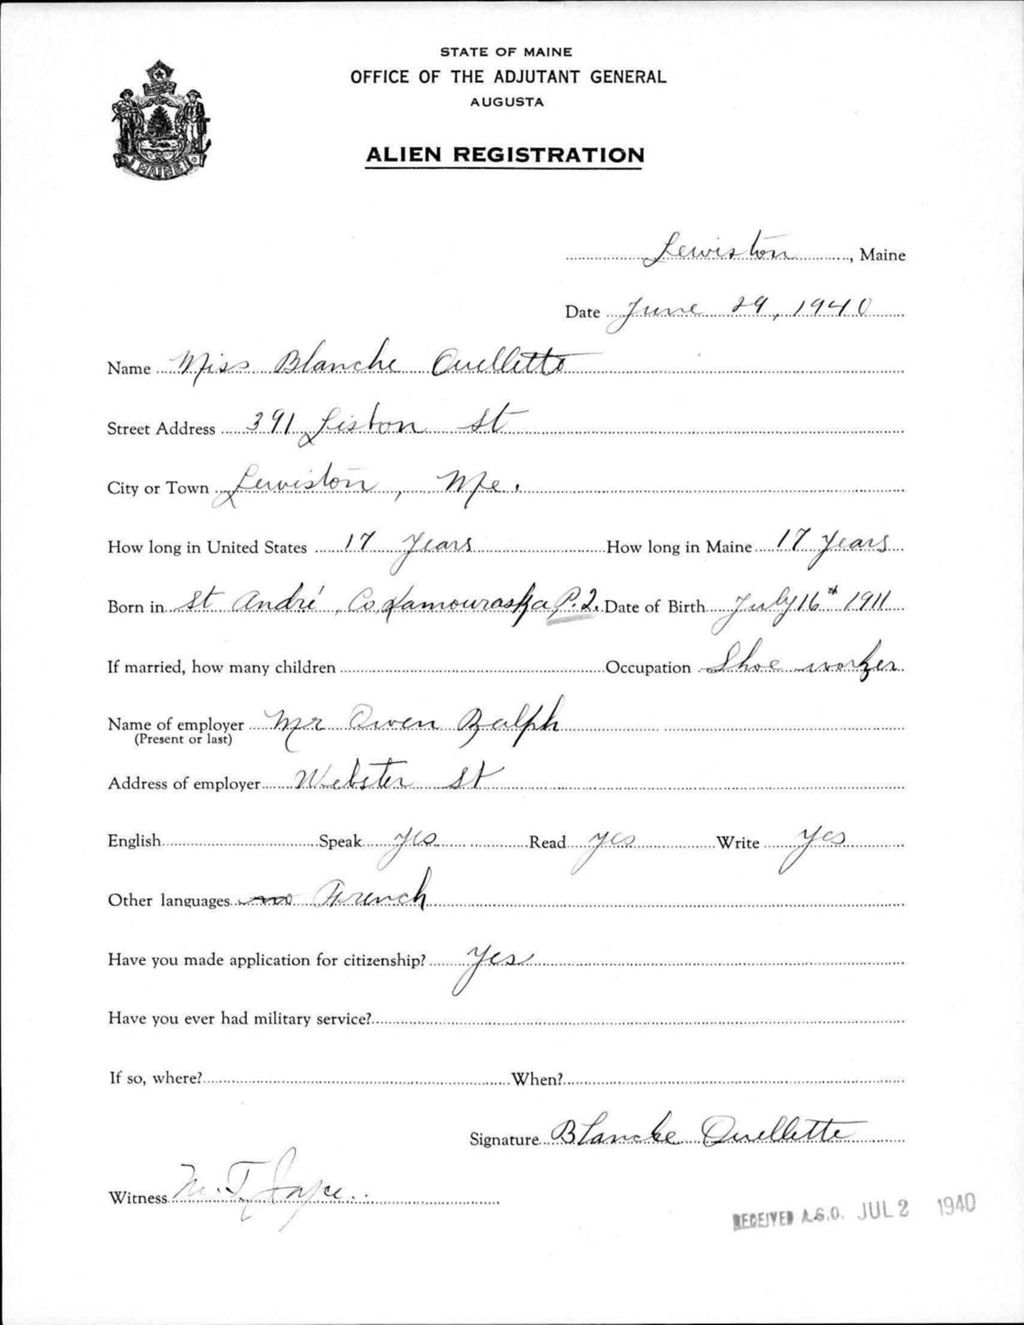 STATE OF MAINE
OFFICE OF THE ADJUTANT GENERAL
AUGUSTA
ALIEN REGISTRATION
MAINE
Lewiston, Maine
Date June 29, 1940
Name Miss Blanche Ouellette
Street Address 391 Lisbon St
City or Town Lewiston, Me.
How long in United States 17 Years How long in Maine 17 Years
Born in St André, Co Kamouraska P.Q. Date of Birth July 16th 1911
If married, how many children Occupation Shoe worker
Name of employer Mr Owen Ralph
(Present or last)
Address of employer Webster St
English Speak Yes Read Yes Write Yes
Other languages no French
Have you made application for citizenship? Yes
Have you ever had military service?
If so, where? When?
Signature Blanche Ouellette
Witness
RECEIVED A.G.O. JUL 2 1940